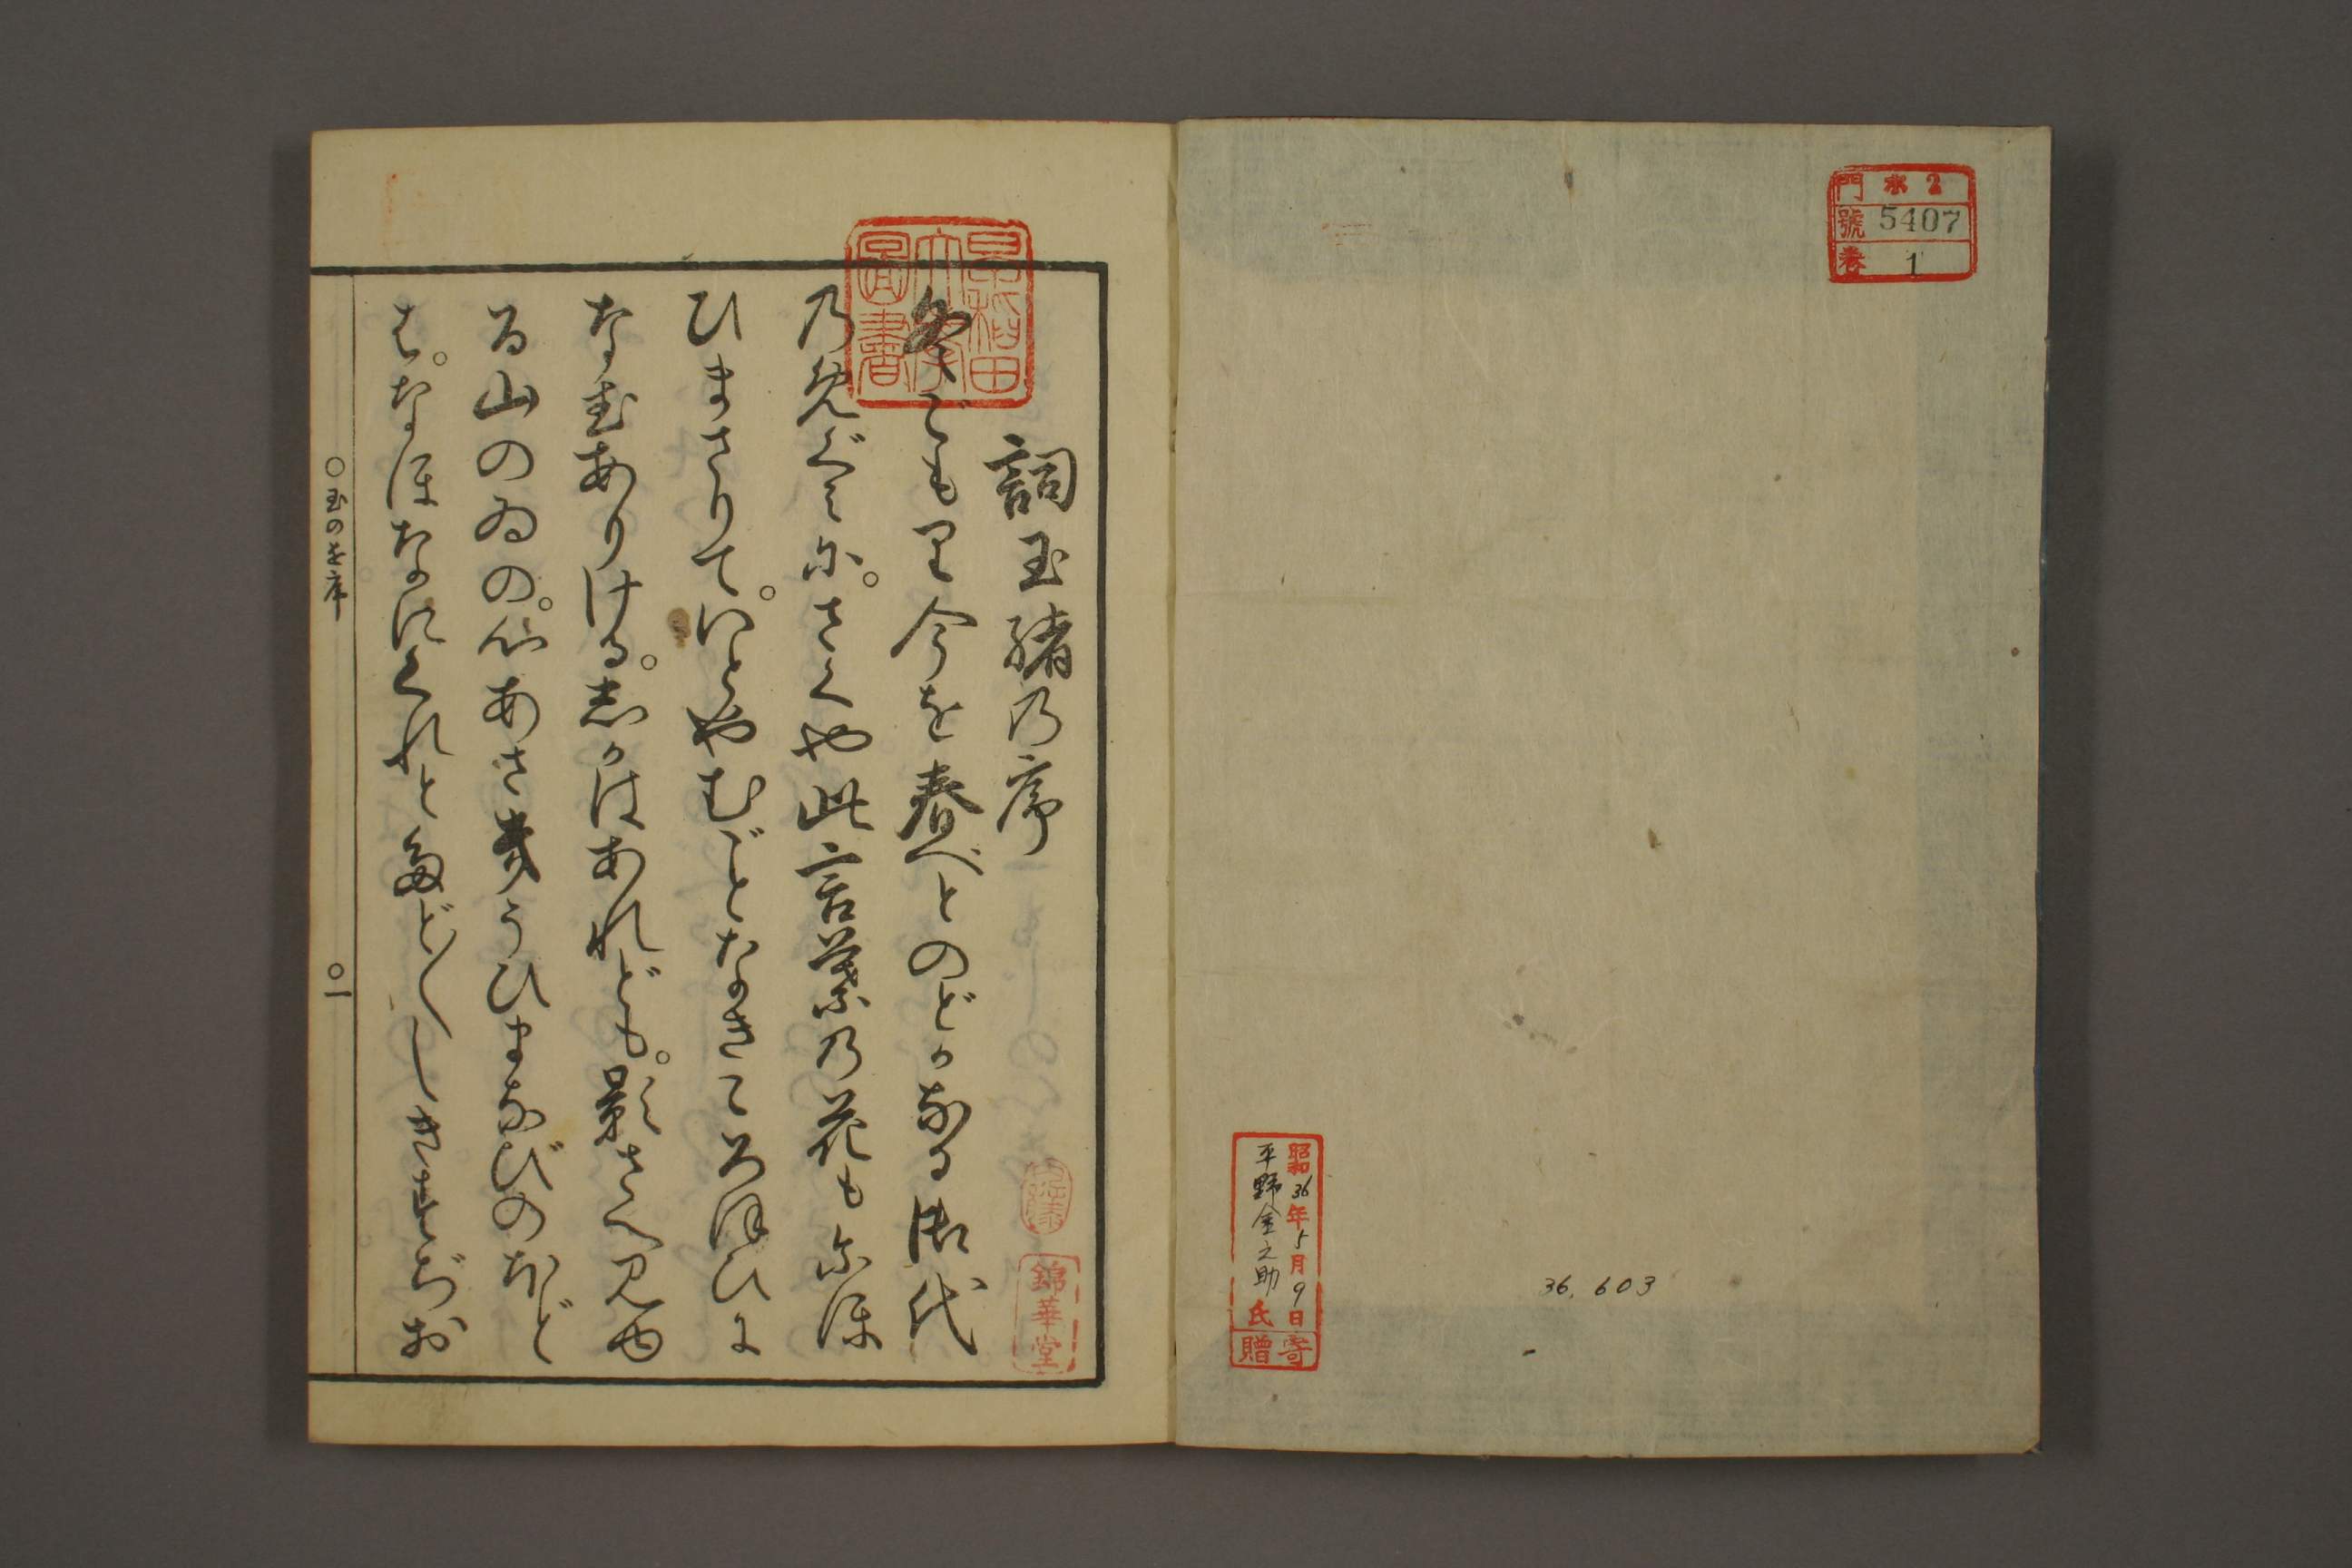 門 ホ2
號 5407
卷 1
昭和36年5月9日
平野金之助氏
寄贈
36.603
早稲田
大學
圖書
詞玉緒乃序
冬ごもり今を春べとのどかなる御代
乃めぐみに。さくや此言葉乃花もにほ
ひまさりて。いとやむごとなきころほひに
なむありける。志かはあれども。影さへ見ゆ
る山のゐの。心あさきうひまなびのほど
は。なほなにくれとたど〳〵しきすぢお
錦華堂
○玉のを序
○一